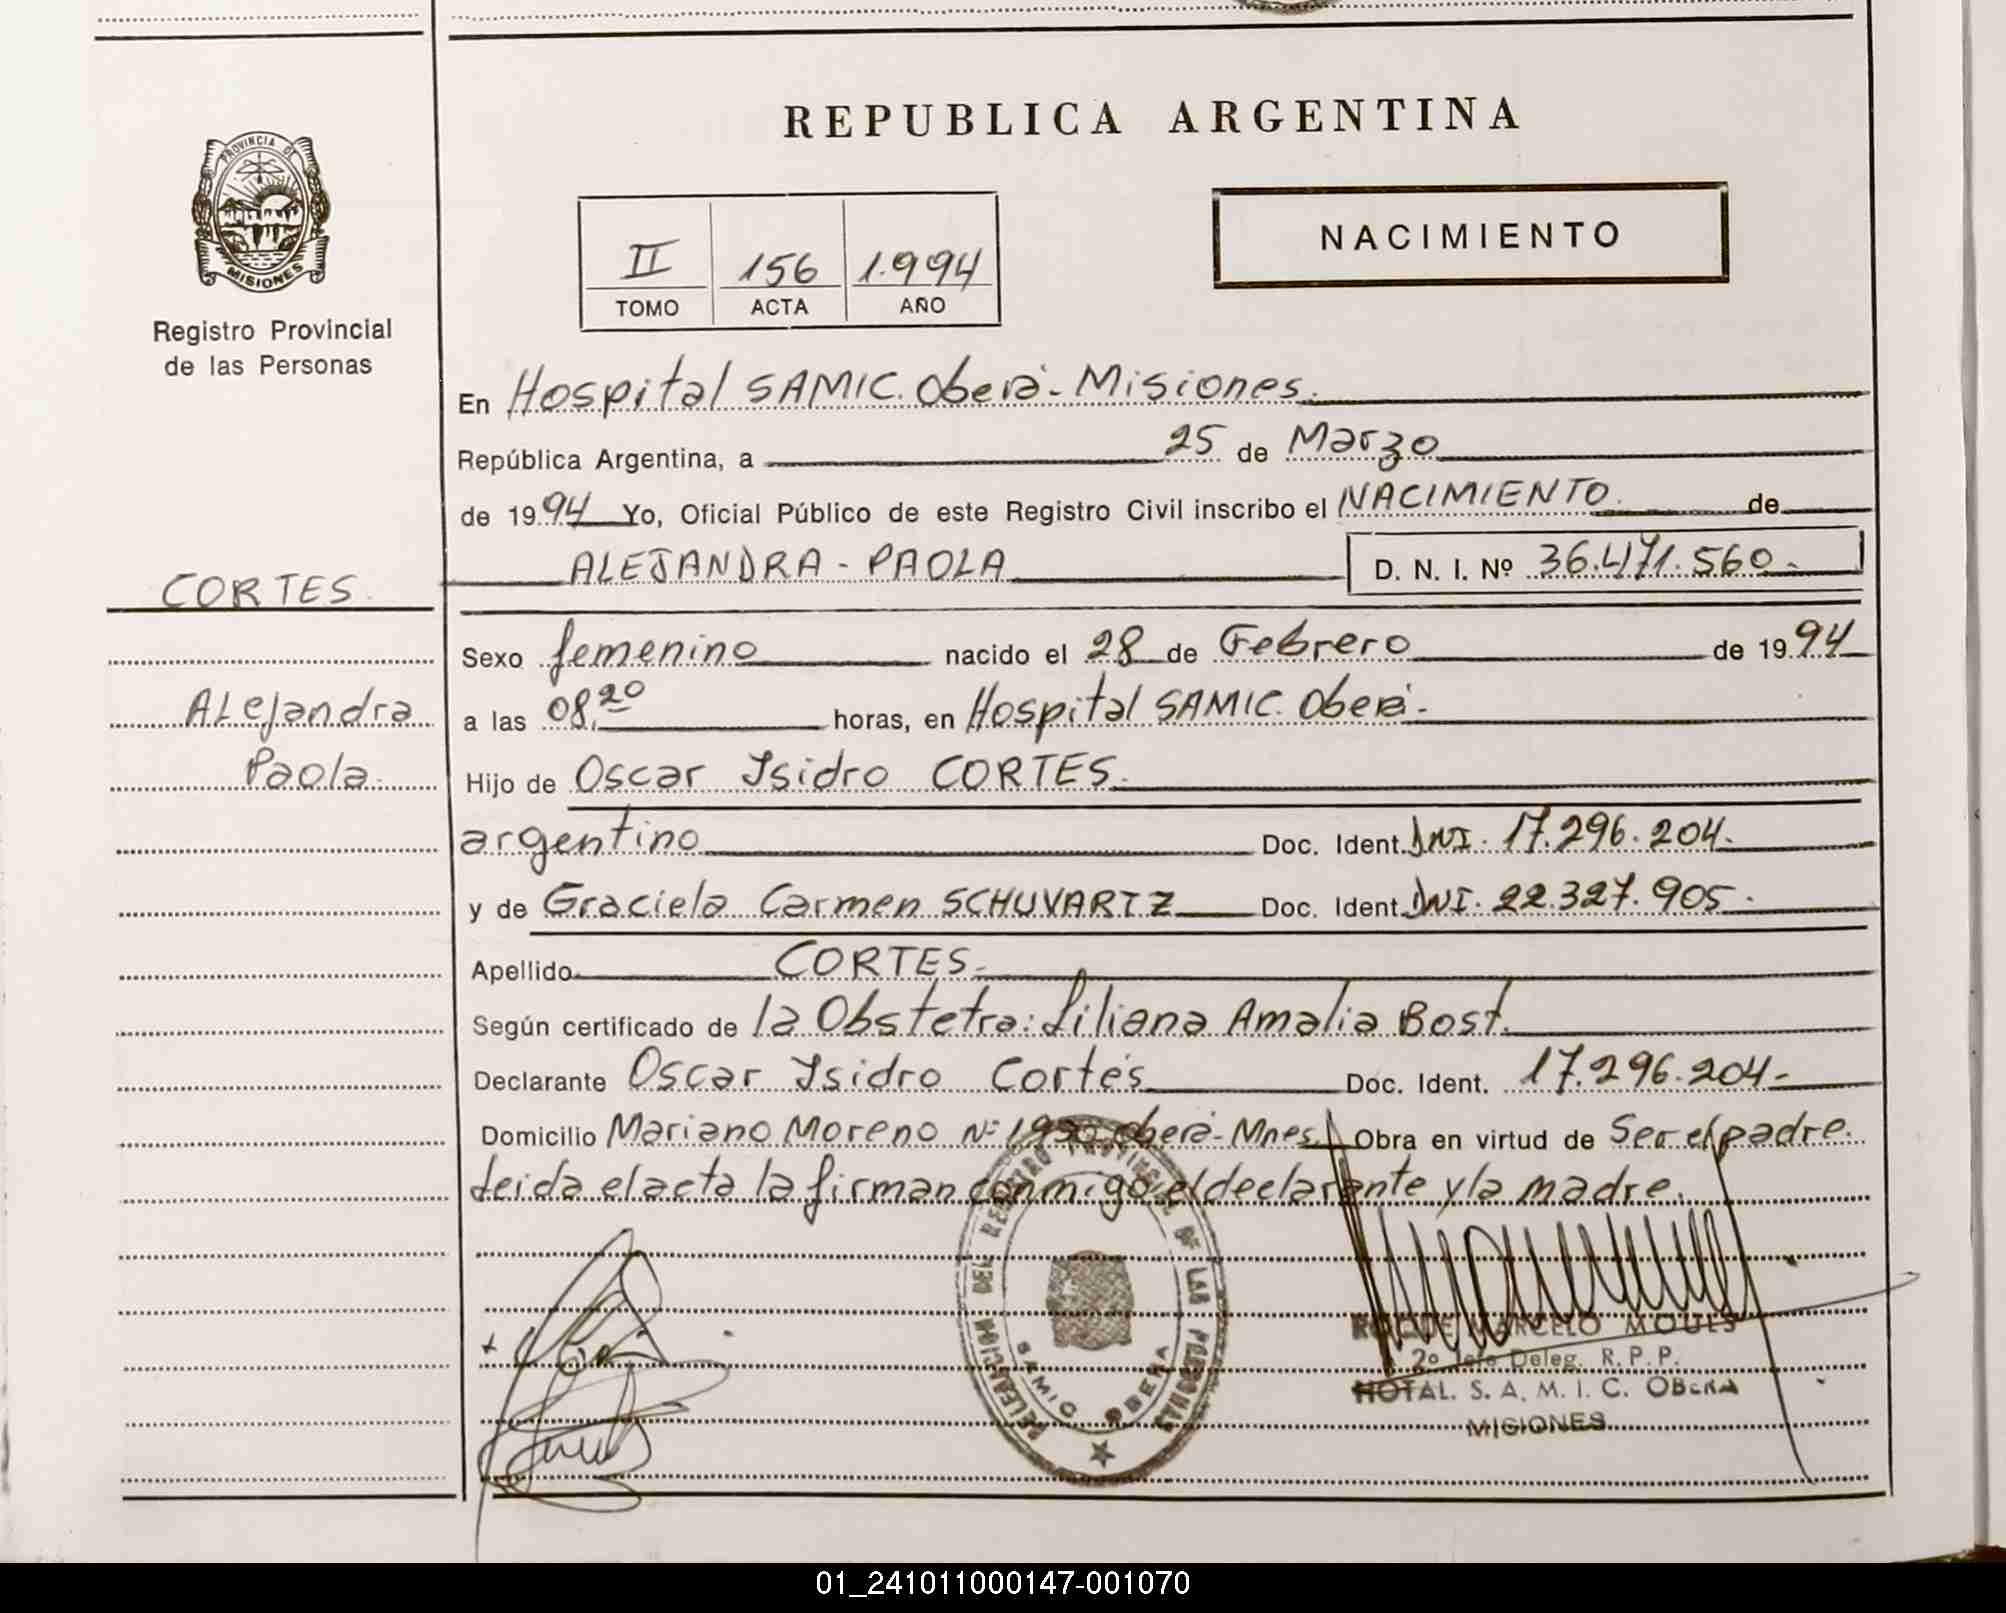 PROVINCIA DE
MISIONES
Registro Provincial
de las Personas
CORTES
Alejandra
Paola
REPUBLICA ARGENTINA
II 156 1.994
TOMO ACTA AÑO
NACIMIENTO
En Hospital SAMIC. Oberá - Misiones.
República Argentina, a 25 de Marzo
de 1994 Yo, Oficial Público de este Registro Civil inscribo el NACIMIENTO de
ALEJANDRA - PAOLA D. N. I. Nº 36.471.560.-
Sexo femenino nacido el 28 de Febrero de 1994
a las 08,20 horas, en Hospital SAMIC. Oberá -
Hijo de Oscar Isidro CORTES.
argentino Doc. Ident. DNI. 17.296.204.
y de Graciela Carmen SCHUVARTZ Doc. Ident. DNI. 22.327.905.
Apellido CORTES.-
Según certificado de la Obstetra: Liliana Amalia Bost.
Declarante Oscar Isidro Cortés Doc. Ident. 17.296.204.-
Domicilio Mariano Moreno Nº Oberá - Mnes. Obra en virtud de Ser el padre.
Leida el acta la firman conmigo el declarante y la madre.
DELEGACION DEL REGISTRO PROVINCIAL DE LAS PERSONAS
SAMIC OBERA
ROQUE MARCELO MOULS
2º Jefe Deleg. R. P. P.
HOTAL. S. A. M. I. C. OBERA
MISIONES
01_241011000147-001070